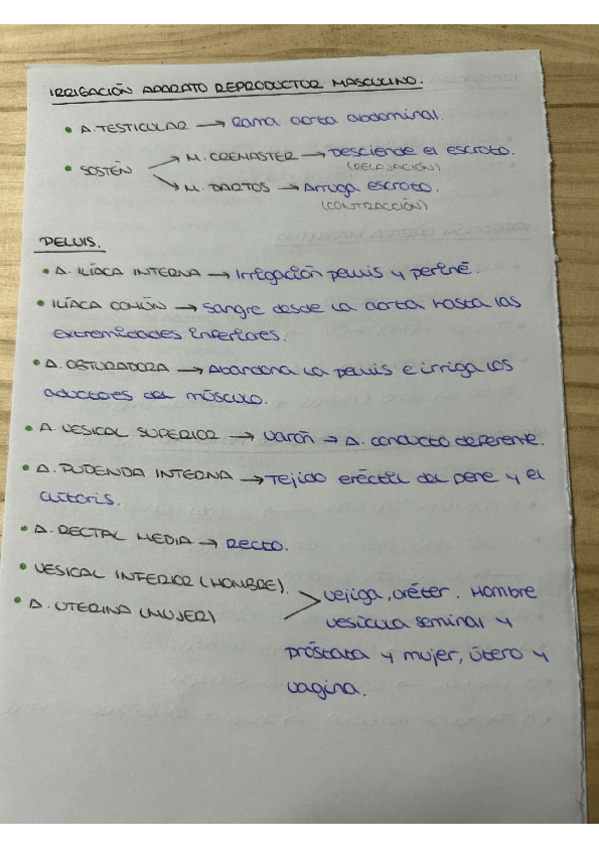 IRRIGACIÓN APARATO REPRODUCTOR MASCULINO.
• A. TESTICULAR → Rama aorta abdominal.
• SOSTÉN → M. CREMASTER → Desciende el escroto.
(RELAJACIÓN)
→ M. DARTOS → Arruga escroto.
(CONTRACCIÓN)
PELVIS.
• A. ILÍACA INTERNA → Irrigación pelvis y periné.
• ILÍACA COMÚN → Sangre desde la aorta hasta las
extremidades inferiores.
• A. OBTURADORA → Abandona la pelvis e irriga los
aductores del músculo.
• A. VESICAL SUPERIOR → Varón → A. conducto deferente.
• A. PUDENDA INTERNA → Tejido eréctil del pene y el
clítoris.
• A. RECTAL MEDIA → RECTO.
• VESICAL INFERIOR (HOMBRE).
• A. UTERINA (MUJER)
Vejiga, uréter. Hombre
vesícula seminal y
próstata y mujer, útero y
vagina.